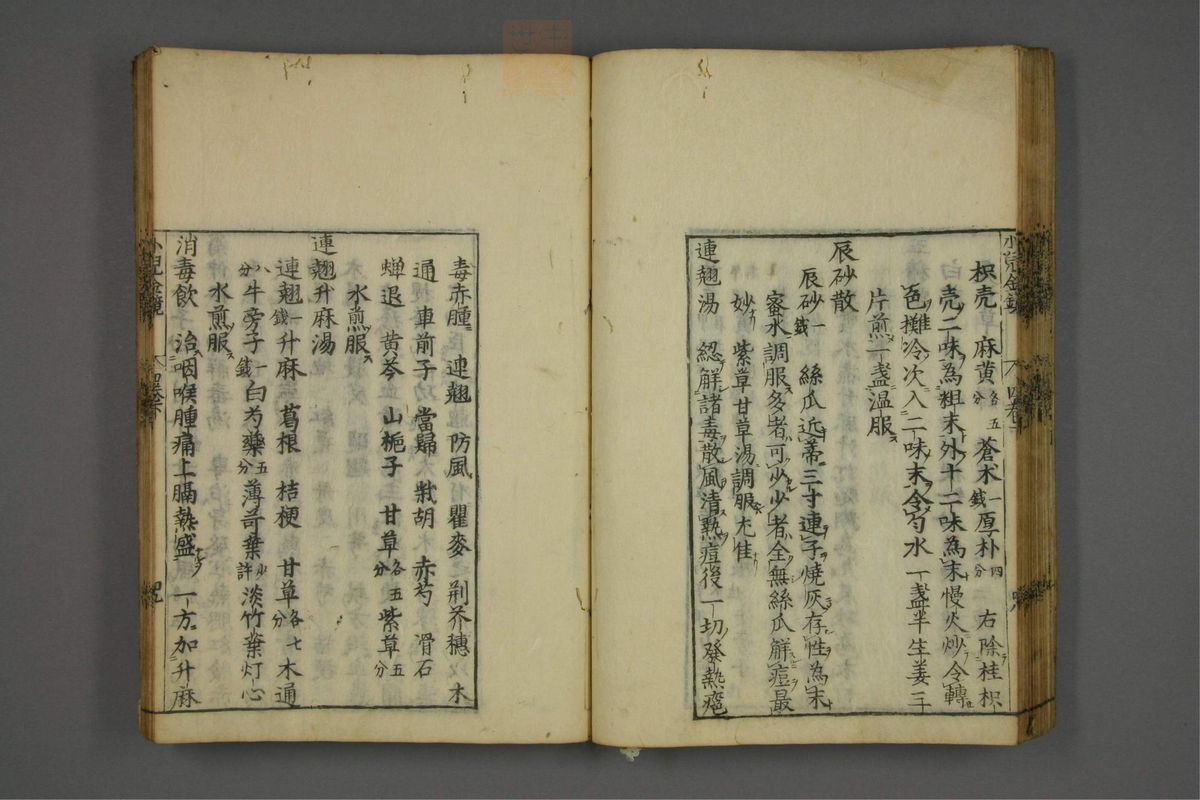 枳壳 麻黄各五分 蒼术一錢 厚朴四分 右除桂枳
壳二味為粗末外十二味為末慢火炒令轉
色攤冷次入二味末令勻水一盞半生姜三
片煎一盞温服
辰砂散
辰砂一錢 絲瓜近蒂三寸連子燒灰存性為末
蜜水調服多者可少少者全無絲瓜解痘最
妙紫草甘草湯調服尤佳
連翹湯 緫解諸毒散風清熱痘後一切發熱瘡
毒赤腫 連翹 防風 瞿麥 荆芥穗 木
通 車前子 當歸 柴胡 赤芍 滑石
蟬退 黄芩 山梔子 甘草各五分 紫草五分
水煎服
連翹升麻湯
連翹一錢 升麻 葛根 桔梗 甘草各七分 木通
八分 牛旁子一錢 白芍藥五分 薄苛葉少許 淡竹葉 灯心
水煎服
消毒飲 治咽喉腫痛上膈熱盛一方加升麻